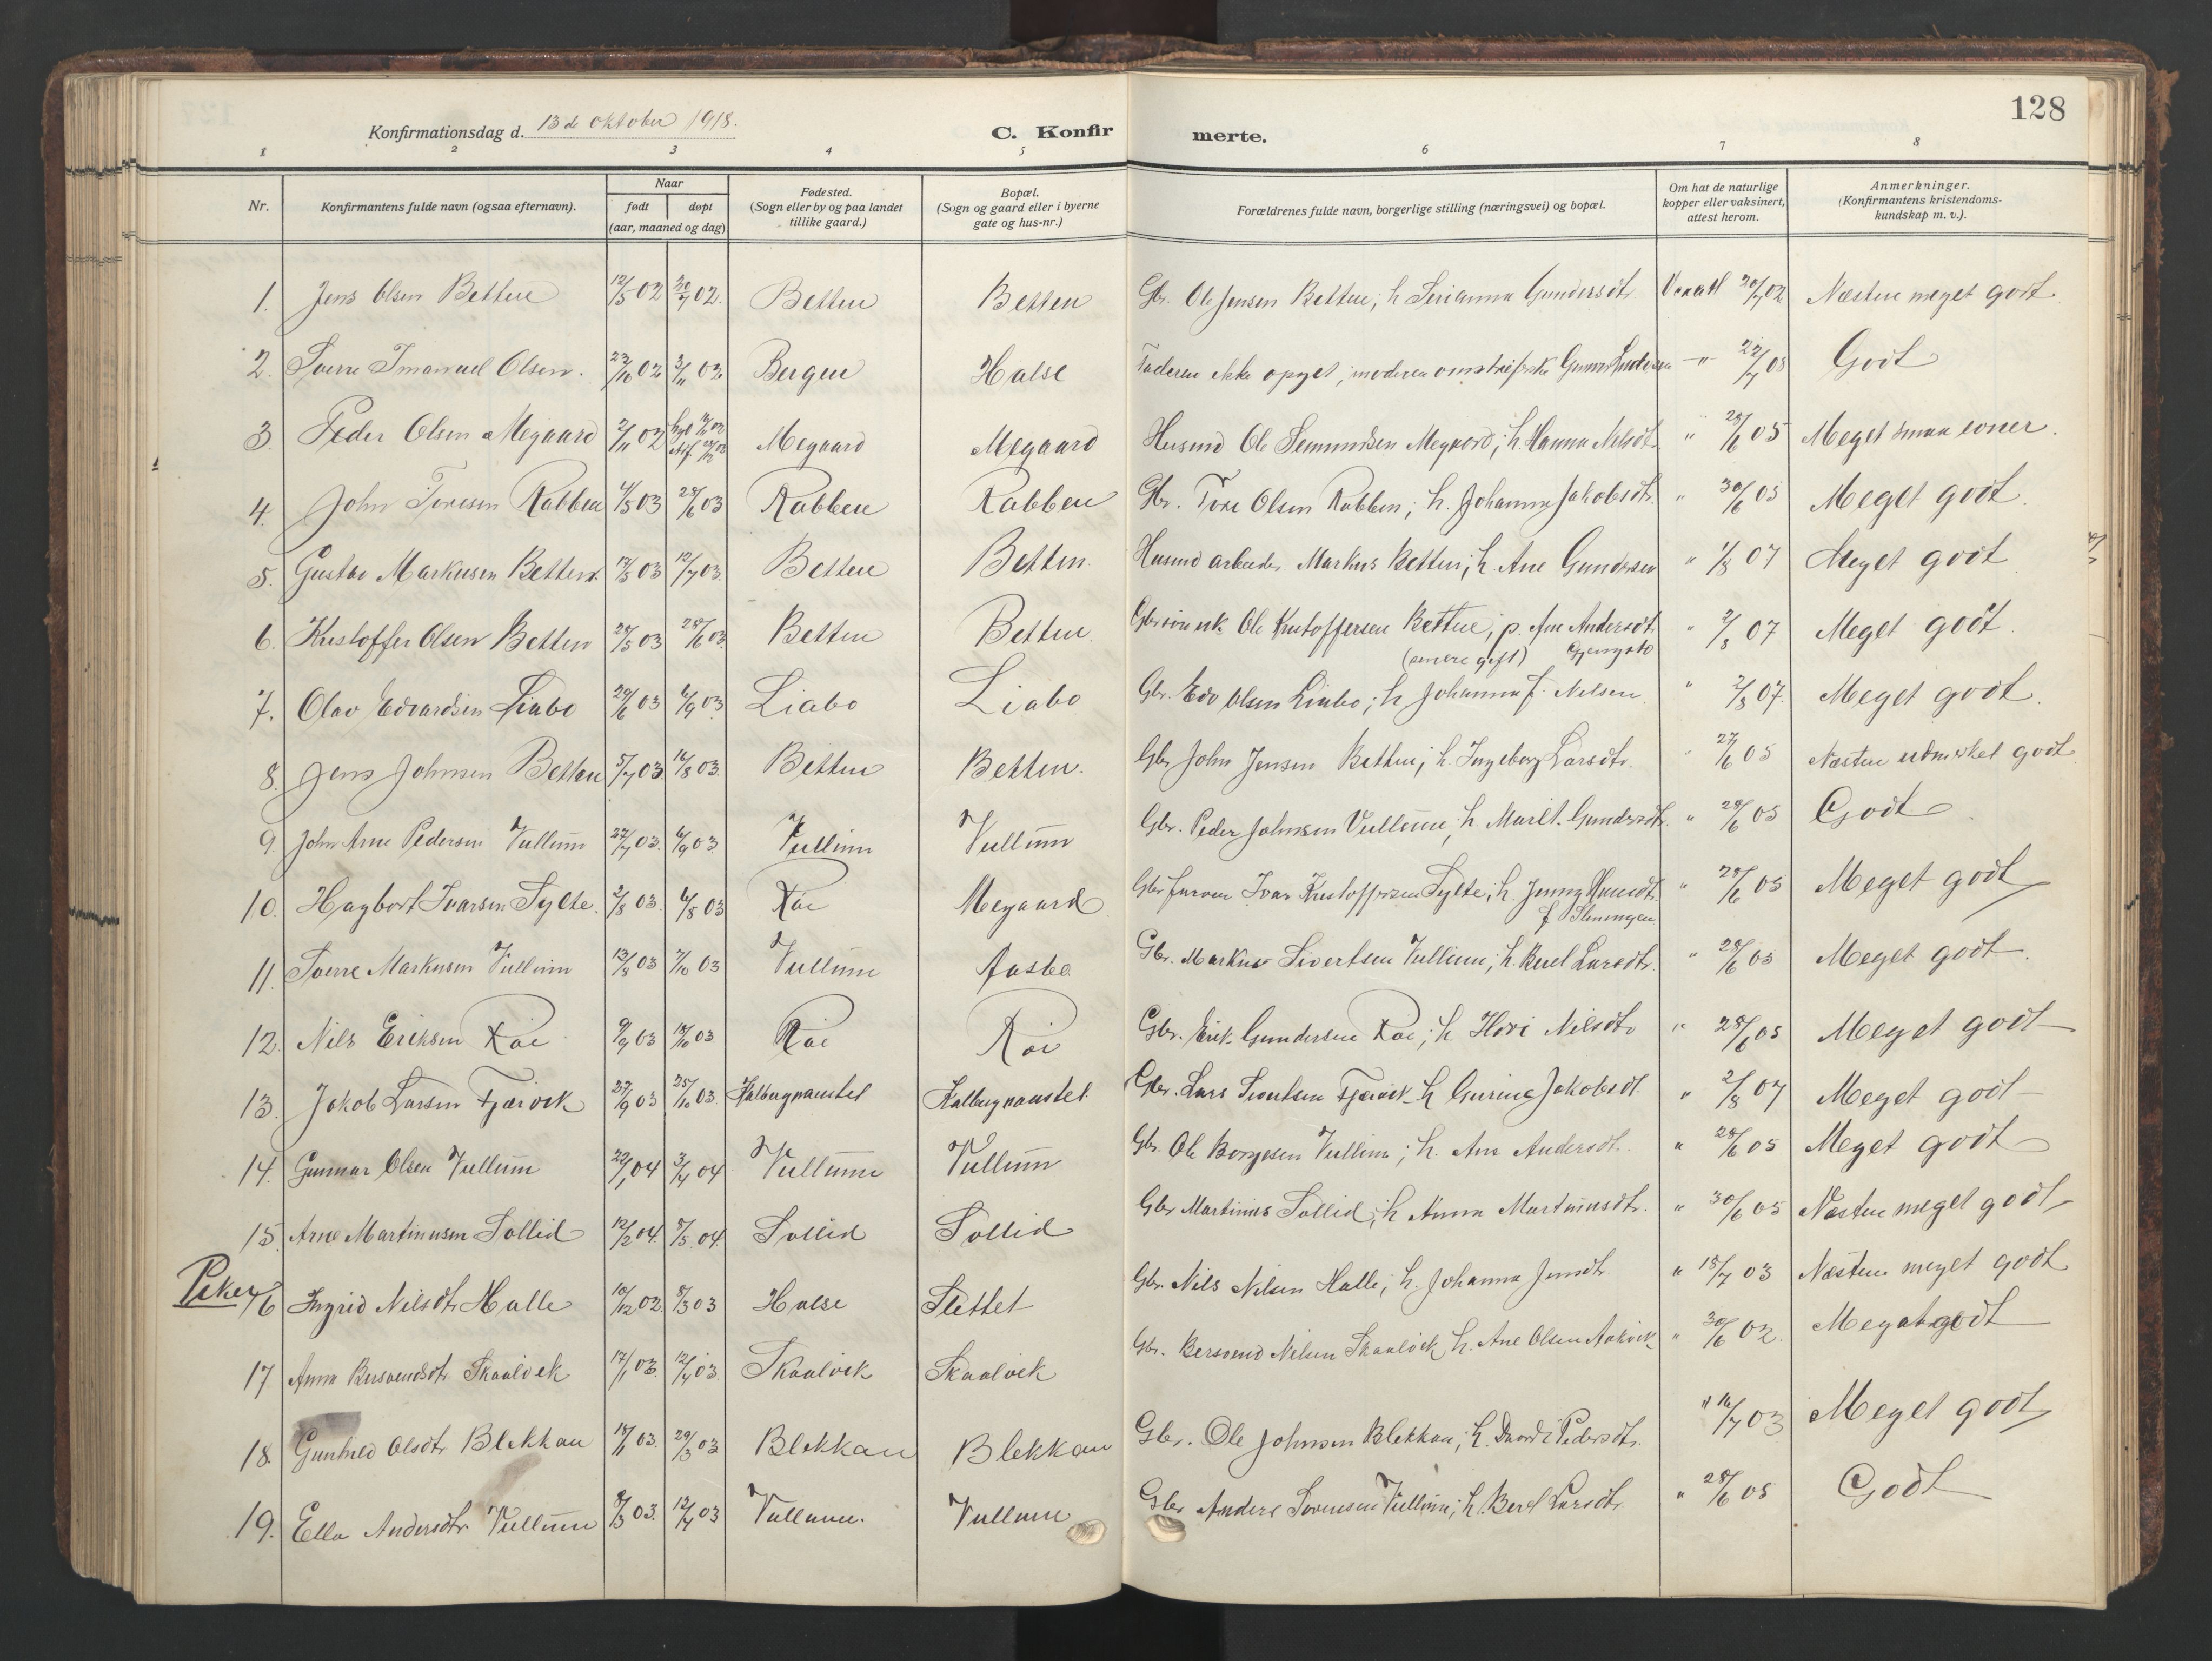 128
Konfirmationsdag d. 13de oktober 1918.
C. Konfirmerte.
1 2 3 4 5 6 7 8
Nr.
Konfirmantens fulde navn (ogsaa efternavn).
Naar
født døpt
(aar, maaned og dag)
Fødested.
(Sogn eller by og paa landet
tillike gaard.)
Bopæl.
(Sogn og gaard eller i byerne
gate og hus-nr.)
Forældrenes fulde navn, borgerlige stilling (næringsvei) og bopæl.
Om hat de naturlige
kopper eller vaksinert,
attest herom.
Anmerkninger.
(Konfirmantens kristendoms-
kundskap m. v.).
1. Jens Olsen Betten 12/5 02 20/7 02. Betten Betten Gbr. Ole Jensen Betten; h. Serianna Gundersdtr. 30/7 02 Næsten meget godt
2. Sverre Imanuel Olsen. 23/10 02 3/11 02 Bergen Halse Faderen ikke opget; moderen Gunna -"- 22/7 08 Godt
3. Peder Olsen Megaard 2/11 02 Megaard Megaard Husmd Ole Semundsen Megaard; h. Hanna Nilsdtr. " 28/6 05 Meget smaa evner.
4. John Toresen Rabben 4/5 03 28/6 03 Rabben Rabben Gbr. Tore Olsen Rabben; h. Johanna Jakobsdtr. " 30/6 05 Meget godt.
5. Gustav Markusen Betten. 17/5 03 12/7 03. Betten Betten. Husmd arbeider Markus Betten; h. Ane Gundersen " 1/8 07 Meget godt
6. Kristoffer Olsen Betten 28/5 03 28/6 03 Betten Betten. Gbrsøn uk. Ole Kristoffersen Betten; p. Ane Andersdt. " 2/8 07 Meget godt.
(senere gift) Gjengstø
7. Olav Edvardsen Liabø 29/6 03 6/9 03 Liabø Liabø Gbr. Edv Olsen Liabø; h Johanna f. Nilsen " 2/8 07. Meget godt.
8. Jens Johnsen Betten 5/7 03. 16/8 03. Betten Betten. Gbr John Jensen Betten; h. Ingeborg Larsdtr. " 27/6 05 Næsten udmerket godt
9. John Arne Pedersen Vullum 27/7 03. 6/9 03 Vullum Vullum Gbr. Peder Johnsen Vullum; h. Marit Gundersdtr. " 28/6 05 Godt
10. Hagbart Ivarsen Sylte. 2/8 03. 6/8 03 Røe Megaard Gbr Ivar Kristoffersen Sylte; h. Jenny Hansdt. " 28/6 05 Meget godt
11. Sverre Markusen Vullum 13/8 03 7/10 03 Vullum Aasbø Gbr. Markus Sivertsen Vullum; h. Beret Larsdtr. " 28/6 05 Meget godt.
12. Nils Eriksen Røe 9/9 03 18/10 03. Røe Røe Gbr. Erik Gundersen Røe; h Nilsdtr " 28/6 05 Meget godt
13. Jakob Larsen Fjærvik 27/9 03 25/10 03. Kalbugnaustet Kalbugnaustet Gbr. Lars Sivertsen Fjærvik h Gurine Jakobsdt. " 2/8 07 Meget godt
14. Gunnar Olsen Vullum 22/1 04 3/4 04 Vullum Vullum Gbr. Ole Børgesen Vullum; h. Ane Andersdt. " 28/6 05 Meget godt
15. Arne Martinusen Sollid 12/2 04. 8/5 04 Sollid Sollid Gbr Martinus Sollid; h Anna Martinusdtr. " 30/6 05 Næsten meget godt
Piker
16 Ingrid Nilsdtr. Halle 10/12 02. 8/3 03 Halse Slettet Gbr. Nils Nilsen Halle; h. Johanna Jensdtr. " 18/7 03 Næsten meget godt
17 Anna Bersvendsdtr. Skaalvik 17/1 03. 12/4 03 Skaalvik Skaalvik Gbr. Bersvend Nilsen Skaalvik h. Ane Olsen Aakvik " 30/6 02. Meget godt
18. Gunhild Olsdtr. Blekkan 18/1 03. 29/3 03 Blekkan Blekkan Gbr. Ole Johnsen Blekkan; h. Pedersdtr. " 16/7 03 Meget godt
19. Ella Andersdtr. Vullum 8/3 03. 12/4 03 Vullum. Vullum Gbr Anders Sørensen Vullum; h. Beret Larsdtr. " 28/6 05 Godt